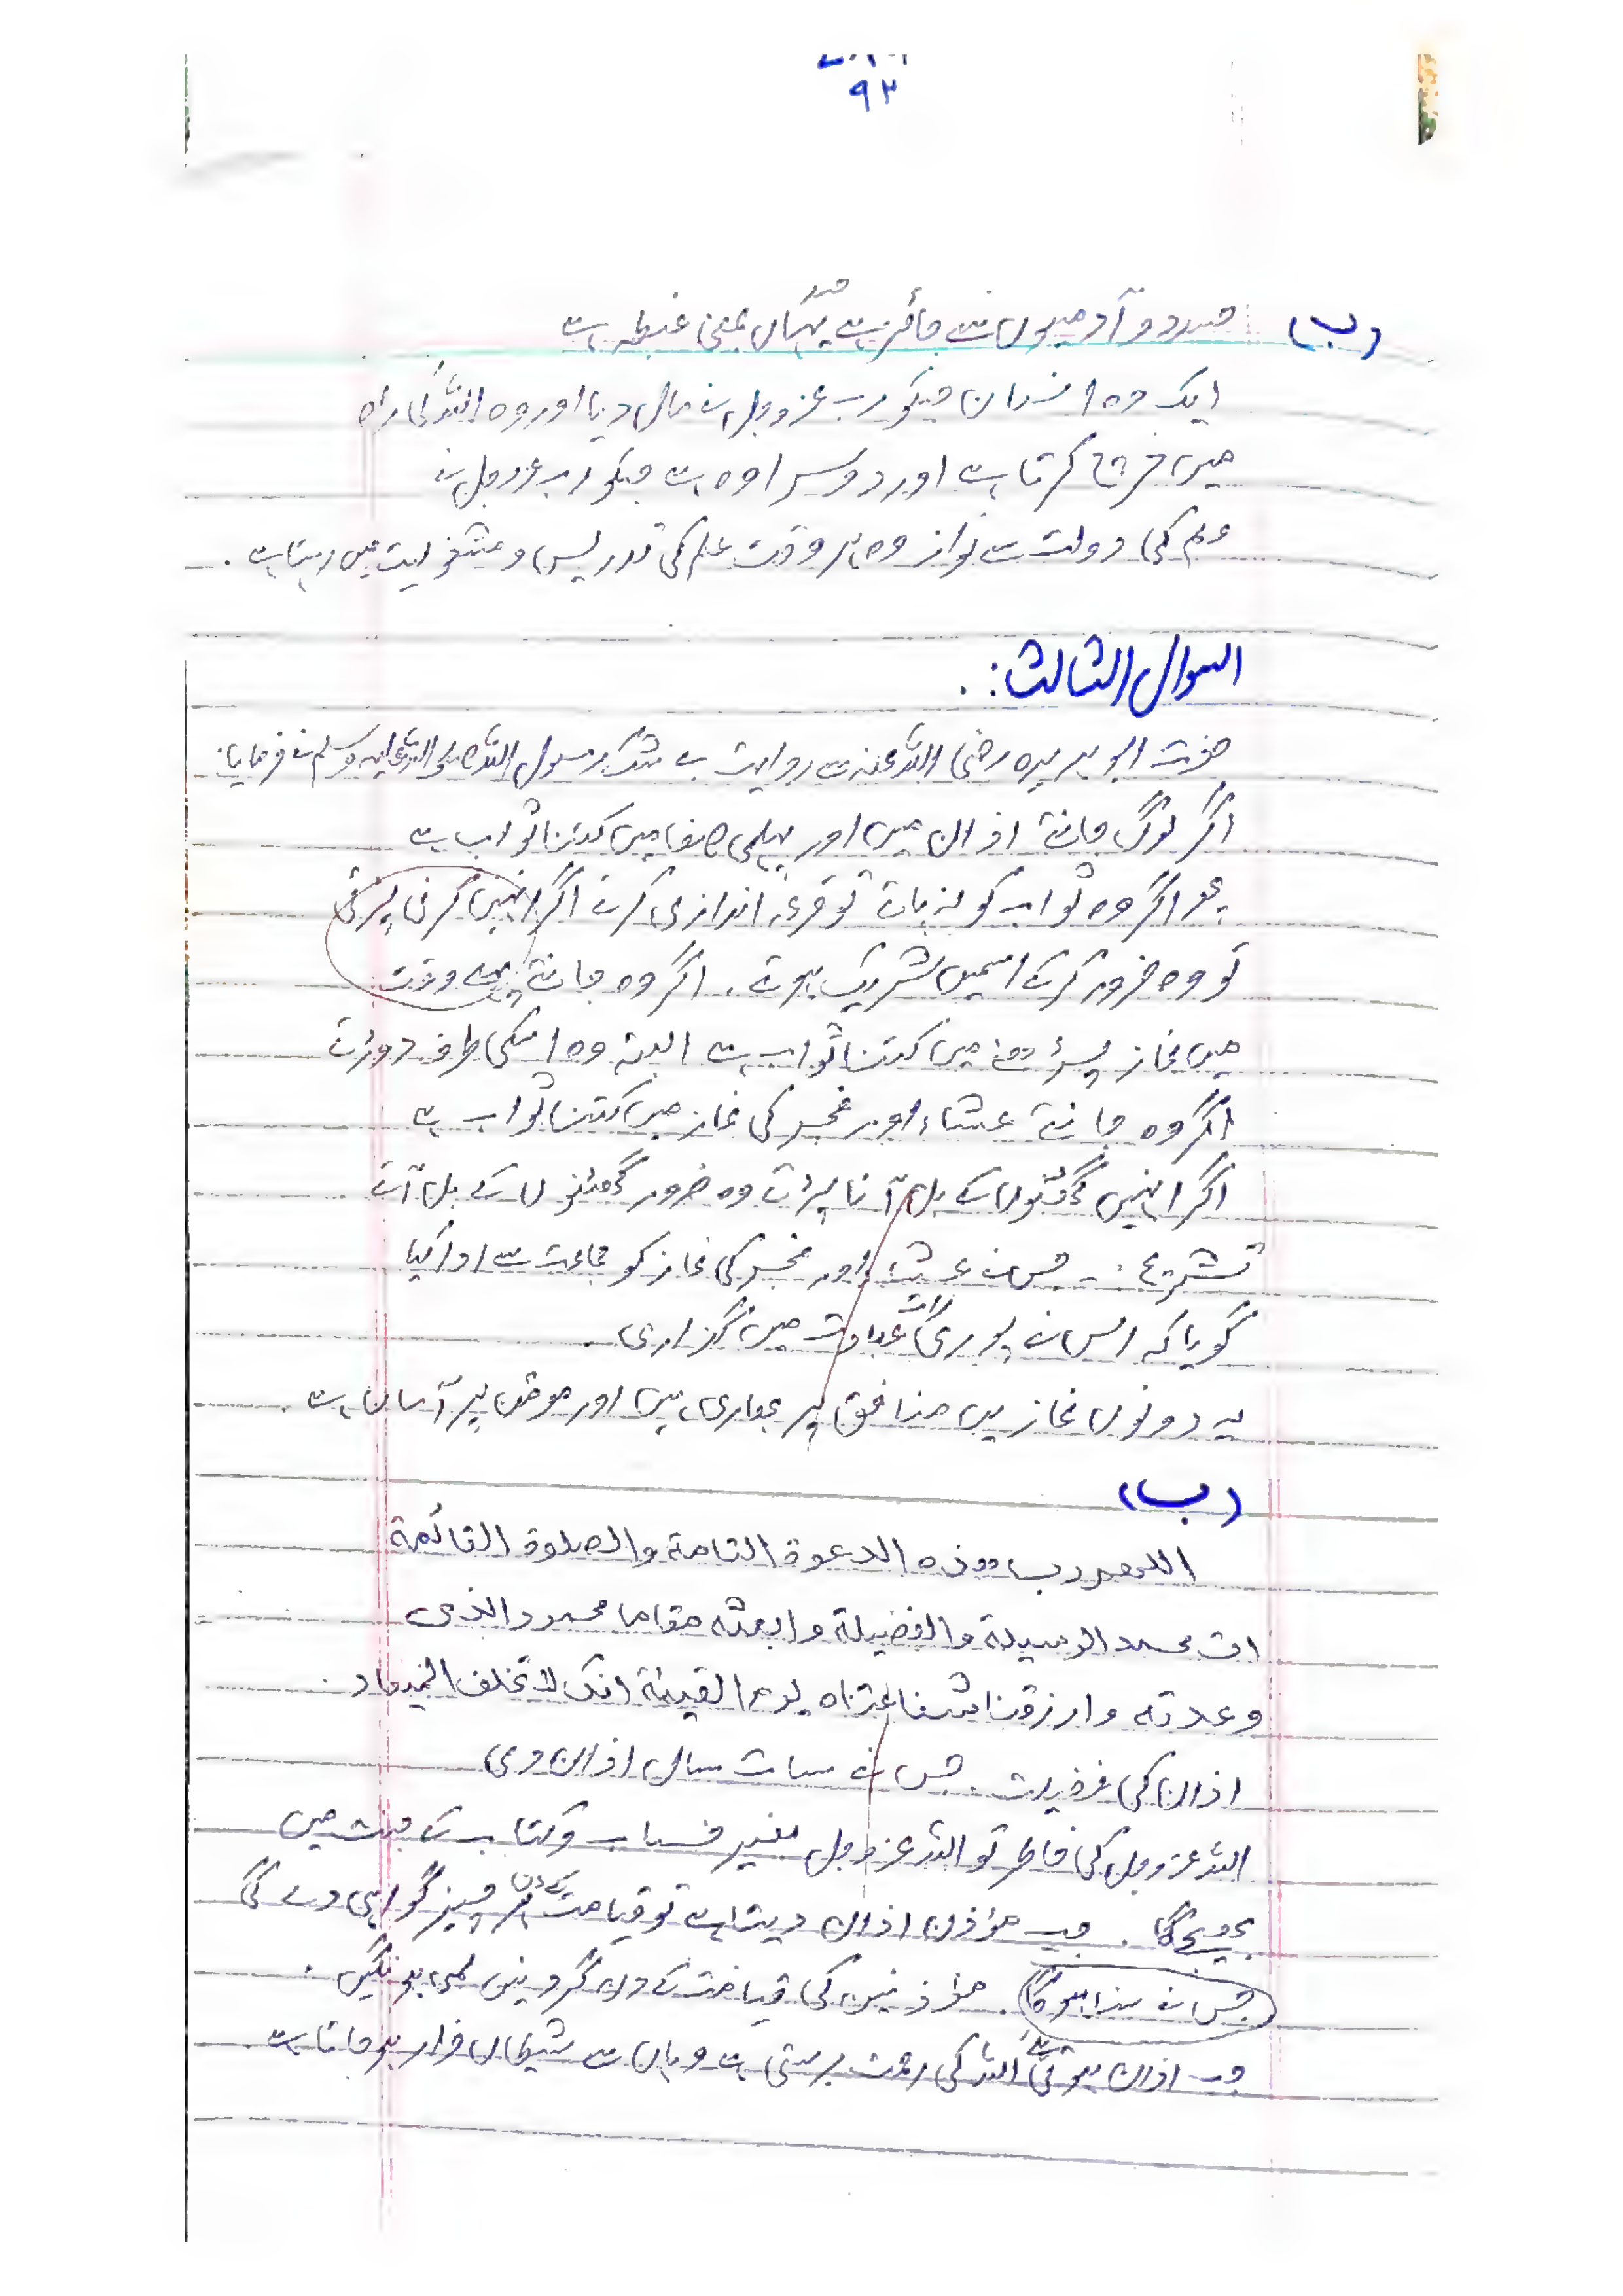 ۹۳
(ب) حسد دو آدمیوں سے جائز ہے یہاں حسد بمعنی غبطہ ہے
ایک وہ انسان جسکو رب عزوجل نے مال دیا اور وہ اللہ کی راہ
میں خرچ کرتا ہے اور دوسرا وہ ہے جسکو رب عزوجل نے
علم کی دولت سے نواز وہ ہر وقت علم کی تدریس و مشغولیت میں رہتا ہے .
السوال الثالث: .
حضرت ابو ہریرہ رضی اللہ عنہ سے روایت بے شک رسول اللہ صلی اللہ علیہ وسلم نے فرمایا:
اگر لوگ جانتے اذان میں اور پہلی صف میں کتنا ثواب ہے
پھر اگر وہ ثواب کو نہ پاتے تو قرعہ اندازی کرتے اگر انہیں کرنی پڑتی
تو وہ ضرور کرتے اسمیں شریک ہوتے . اگر وہ جانتے پہلے وقت
میں نماز پڑھنے میں کتنا ثواب ہے البتہ وہ اسکی طرف دوڑتے
اگر وہ جانتے عشاء اور فجر کی نماز میں کتنا ثواب ہے
اگر انہیں گھٹنوں کے بل آنا پڑتا وہ ضرور گھٹنوں کے بل آتے
تشریح :- جس نے عشاء اور فجر کی نماز کو جماعت سے ادا کیا
گویا کہ اس نے پوری رات عبادت میں گزاری .
یہ دونوں نمازیں منافق پر بھاری ہیں اور مومن پر آسان ہے .
(ب)
اللھم رب ھذہ الدعوة التامة والصلوة القائمة
ات محمد الوسیلة والفضیلة وابعثه مقاما محمود الذی
وعدته وارزقنا شفاعتاہ یوم القیمة انک لا تخلف المیعاد .
اذان کی فضیلت . جس نے سات سال اذان دی
اللہ عزوجل کی خاطر تو اللہ عزوجل بغیر حساب و کتاب کے جنت میں
بھیجے گا . جب مؤذن اذان دیتا ہے تو قیامت کے دن ہر چیز گواہی دے گی
جس نے سنا ہو گا . مؤذنین کی قیامت کے دن گردنیں لمبی ہونگیں .
جب اذان ہوتی ہے اللہ کی رحمت برستی ہے وہاں سے شیطان فرار ہو جاتا ہے .